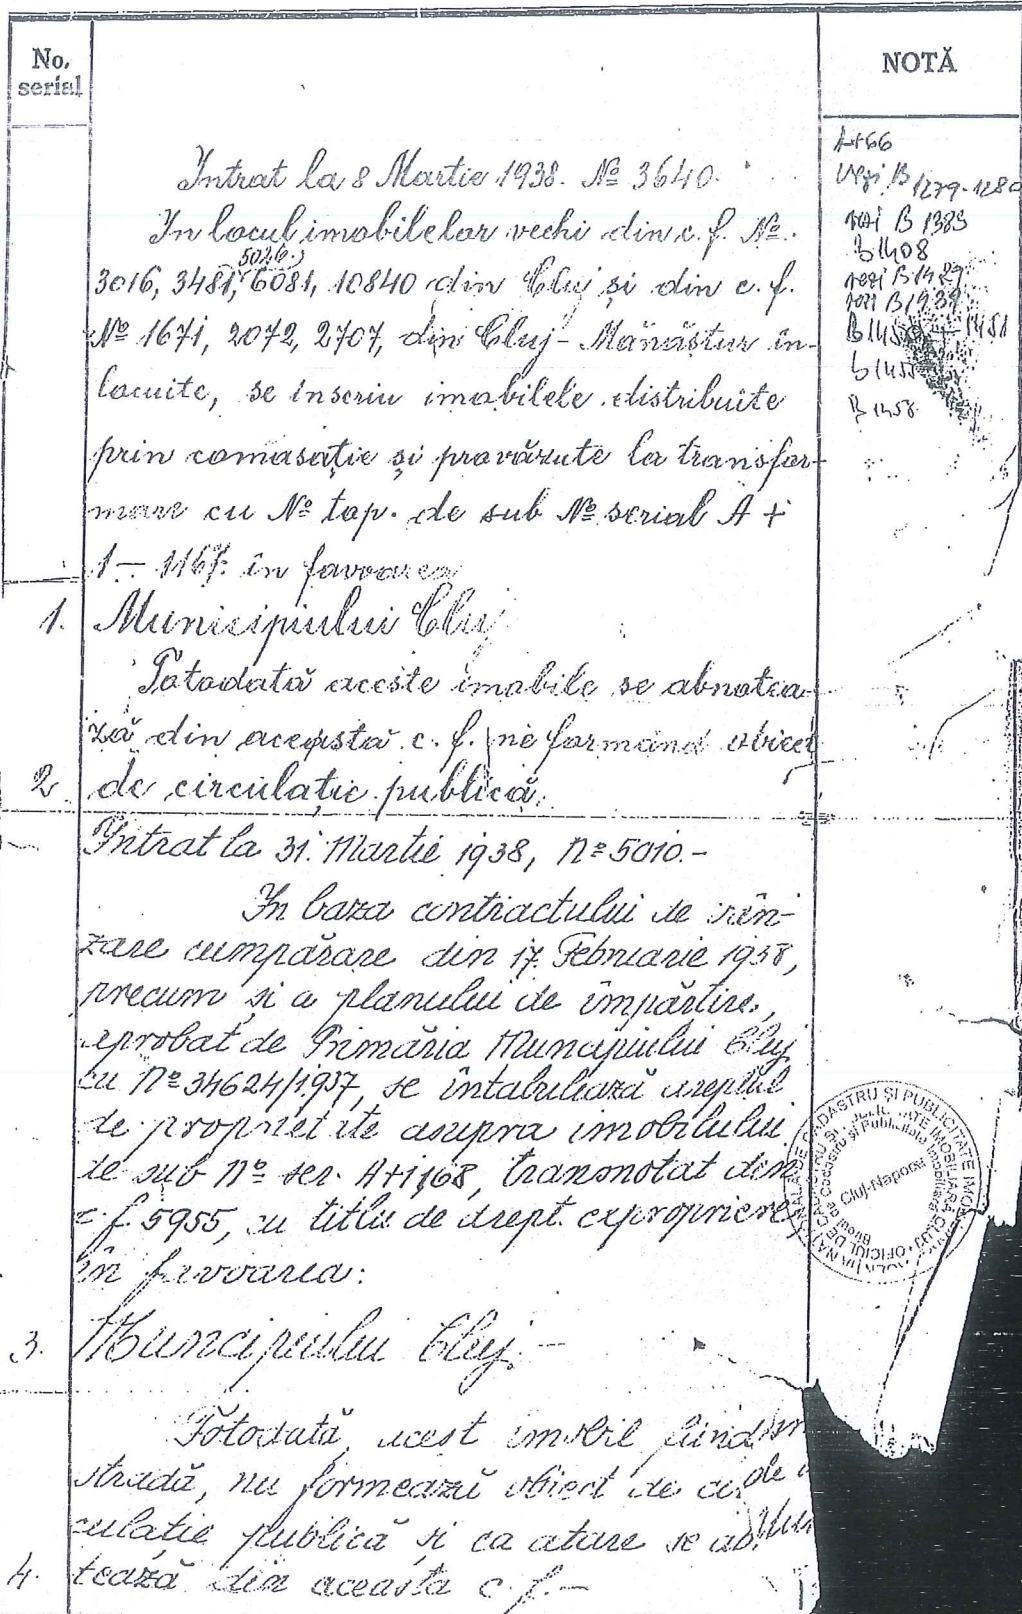 No. serial
NOTĂ
Intrat la 8 Martie 1938. № 3640.
In locul imobilelor vechi din c. f. №.
5026,
3016, 3481, 6081, 10840 din Cluj și din c. f.
№ 1671, 2072, 2707, din Cluj-Mănăștur în-
locuite, se inscriu imobilele distribuite
prin comasație și provăzute la transfor-
mare cu № top. de sub № serial A +
1 – 1167. în favoarea
1. Municipiului Cluj
Totodată aceste imobile se abnotea-
ză din aceasta c. f. ne formând obiect
2 de circulație publică.
Intrat la 31. Martie 1938, № 5010.-
In baza contractului de vîn-
zare cumpărare din 17. Februarie 1938,
precum și a planului de împărtire,
aprobat de Primăria Muncipiului Cluj
cu № 34624/1937, se întabulează dreptul
de propriet te asupra imobilului
de sub № ser. A+1168, transnotat din
c. f. 5955, cu titlu de drept. expropriere,
în favoarea:
3. Muncipiului Cluj.-
Totodată, acest imobil fiind
stradă, nu formează obiect de cir
culație publică și ca atare se ab
4. tează din aceasta c. f.-
A+66
vezi B 1279-1280
vezi B 1383
B1408
vezi B1429
B 1458
CADASTRU ȘI PUBLICITATE IMOBILIARĂ
OFICIUL DE CADASTRU ȘI PUBLICITATE IMOBILIARĂ CLUJ
Biroul de Cadastru și Publicitate Imobiliară
Cluj-Napoca